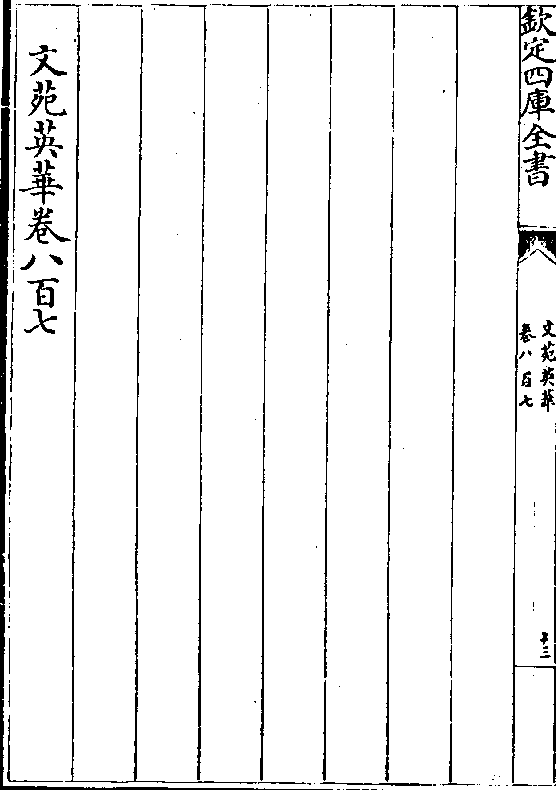 欽定四庫全書
文苑英華
卷八百七
十三
文苑英華卷八百七